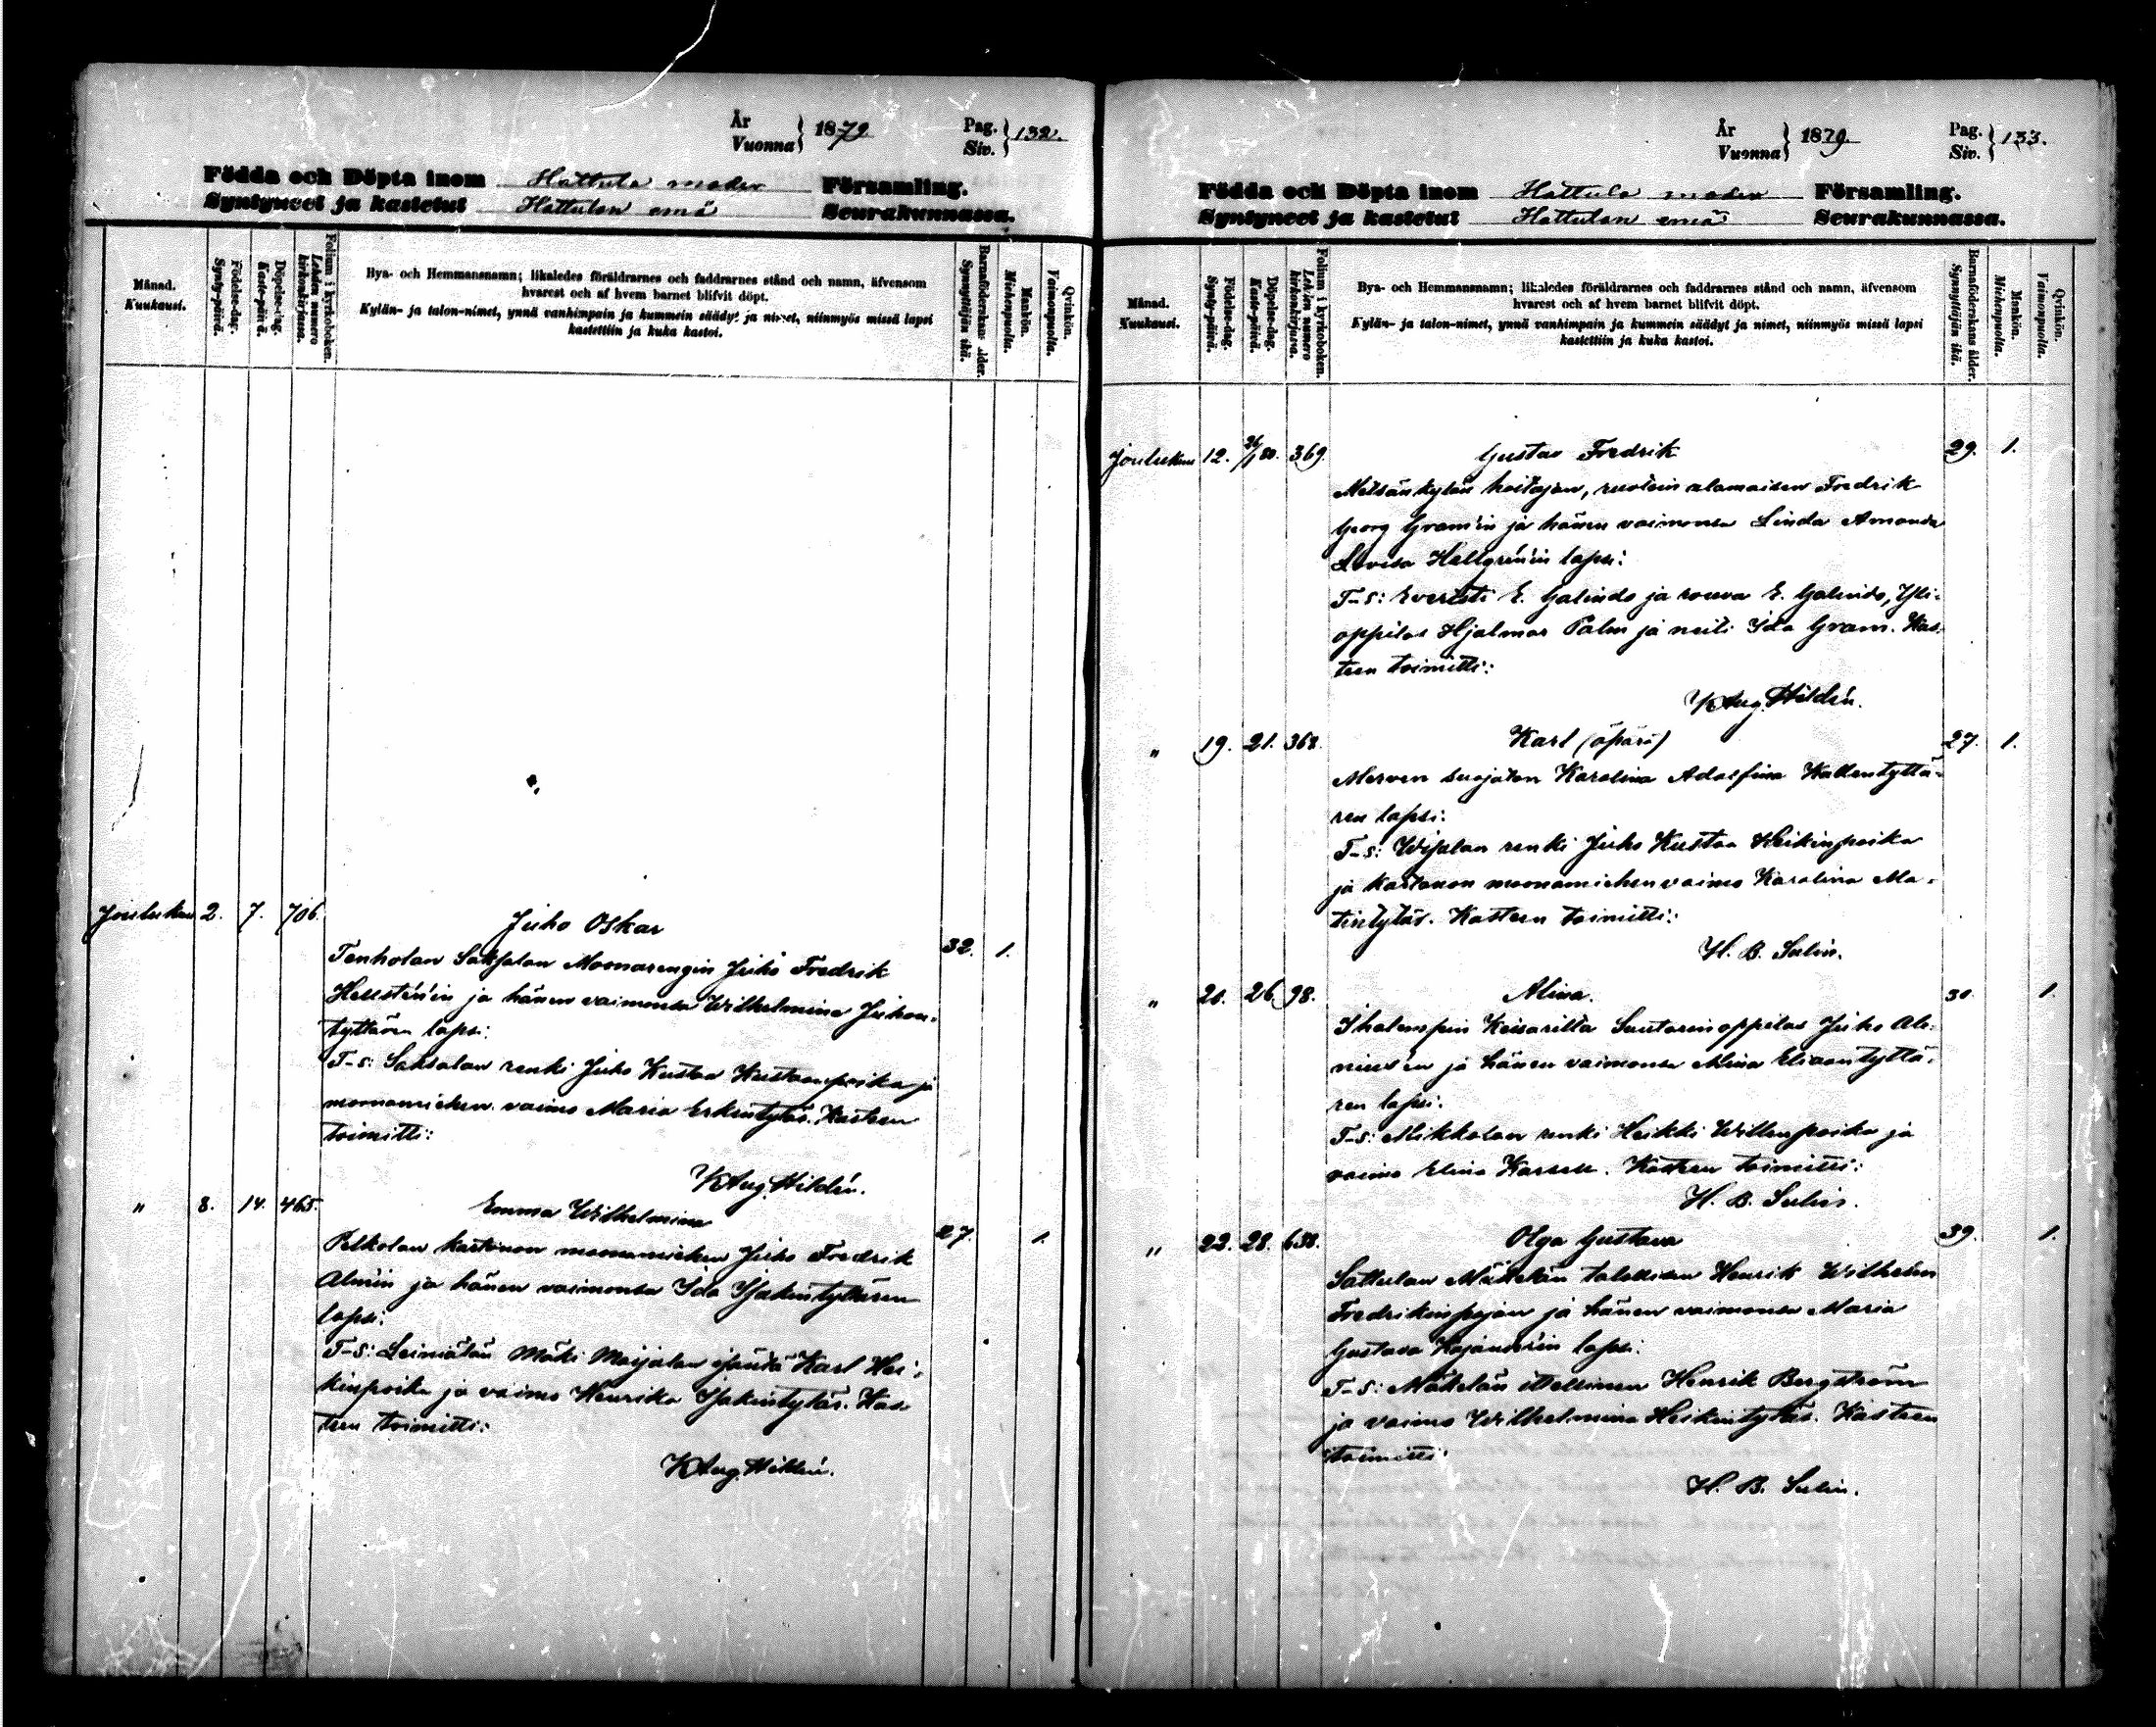 År
Vuonna } 1879 Pag.
Siv. } 132.
Födda och Döpta inom Hattula moder Församling.
Syntyneet ja kastetut Hattulan emä Seurakunnassa.
Månad.
Kuukausi.
Födelse-dag.
Synty-päivä.
Döpelse-dag.
Kaste-päivä.
Folium i kyrkoboken.
Lehden numero
kirkonkirjassa.
Bya- och Hemmansnamn; likaledes föräldrarnes och faddrarnes stånd och namn, äfvensom
hvarest och af hvem barnet blifvit döpt.
Kylän- ja talon-nimet, ynnä vanhimpain ja kummein säädyt ja nimet, niinmyös missä lapsi
kastettiin ja kuka kastoi.
Barnaföderskans ålder.
Synnyttäjän ikä.
Mankön.
Miehenpuolta.
Qvinkön.
Vaimonpuolta.
Joulukuu 2. 7. 706. Juho Oskar 32. 1.
Tenholan Saksalan Moonarengin Juho Fredrik
Hellstén'in ja hänen vaimonsa Wilhelmina Juhon-
tyttären lapsi:
T-s: Saksalan renki Juho Kustaa Kustaanpoika ja
moonamiehen vaimo Maria Erkintytär. Kasteen
toimitti:
K Aug. Hildén.
" 8. 14. 465. Emma Wilhelmina 27. 1.
Pelkolan kartanon moonamiehen Juho Fredrik
Almin ja hänen vaimonsa Ida Isakintyttären
lapsi:
T-s: Leiniälän Mäki Maijalan isäntä Karl Hei-
kinpoika ja vaimo Henrika Isakintytär. Kas-
teen toimitti:
K Aug. Hildén.
År
Vuonna } 1879 Pag.
Siv. } 133.
Födda och Döpta inom Hattula moder Församling.
Syntyneet ja kastetut Hattulan emä Seurakunnassa.
Månad.
Kuukausi.
Födelse-dag.
Synty-päivä.
Döpelse-dag.
Kaste-päivä.
Folium i kyrkoboken.
Lehden numero
kirkonkirjassa.
Bya- och Hemmansnamn; likaledes föräldrarnes och faddrarnes stånd och namn, äfvensom
hvarest och af hvem barnet blifvit döpt.
Kylän- ja talon-nimet, ynnä vanhimpain ja kummein säädyt ja nimet, niinmyös missä lapsi
kastettiin ja kuka kastoi.
Barnaföderskans ålder.
Synnyttäjän ikä.
Mankön.
Miehenpuolta.
Qvinkön.
Vaimonpuolta.
Joulukuu 12. 26/1 80. 369. Gustav Fredrik 29. 1.
Metsänkylän hoitajan, ruotsin alamaisen Fredrik
Georg Gram'in ja hänen vaimonsa Linda Amanda
Lovisa Hallgrén'in lapsi:
T-s: Eversti E. Galindo ja rouva E. Galindo, Yli-
oppilas Hjalmar Palm ja neiti Ida Gram. Kas-
teen toimitti:
K Aug. Hildén.
" 19. 21. 368. Karl (äpärä) 27. 1.
Merven suojaton Karolina Adolfina Kallentyttä-
ren lapsi:
T-s: Wijalan renki Juho Kustaa Heikinpoika
ja kartanon moonamiehen vaimo Karolina Ma-
tintytär. Kasteen toimitti:
H. B. Sulin.
" 21. 26. 98. Alina. 30. 1.
Ihalempin Keisarilta Suutarinoppilas Juho Ale-
nius'en ja hänen vaimonsa Miina Eliaantyttä-
ren lapsi.
T-s: Mikkolan renki Heikki Willenpoika ja
vaimo Elina Karsell. Kasteen toimitti:
H. B. Sulin.
" 22. 28. 638. Olga Gustava 39. 1.
Sattulan Mäkelän talollisen Henrik Wilhelm
Fredrikinpojan ja hänen vaimonsa Maria
Gustava Kajanderin lapsi:
T-s: Mäkelän itsellinen Henrik Bergström
ja vaimo Wilhelmina Heikintytär. Kasteen
toimitti:
H. B. Sulin.